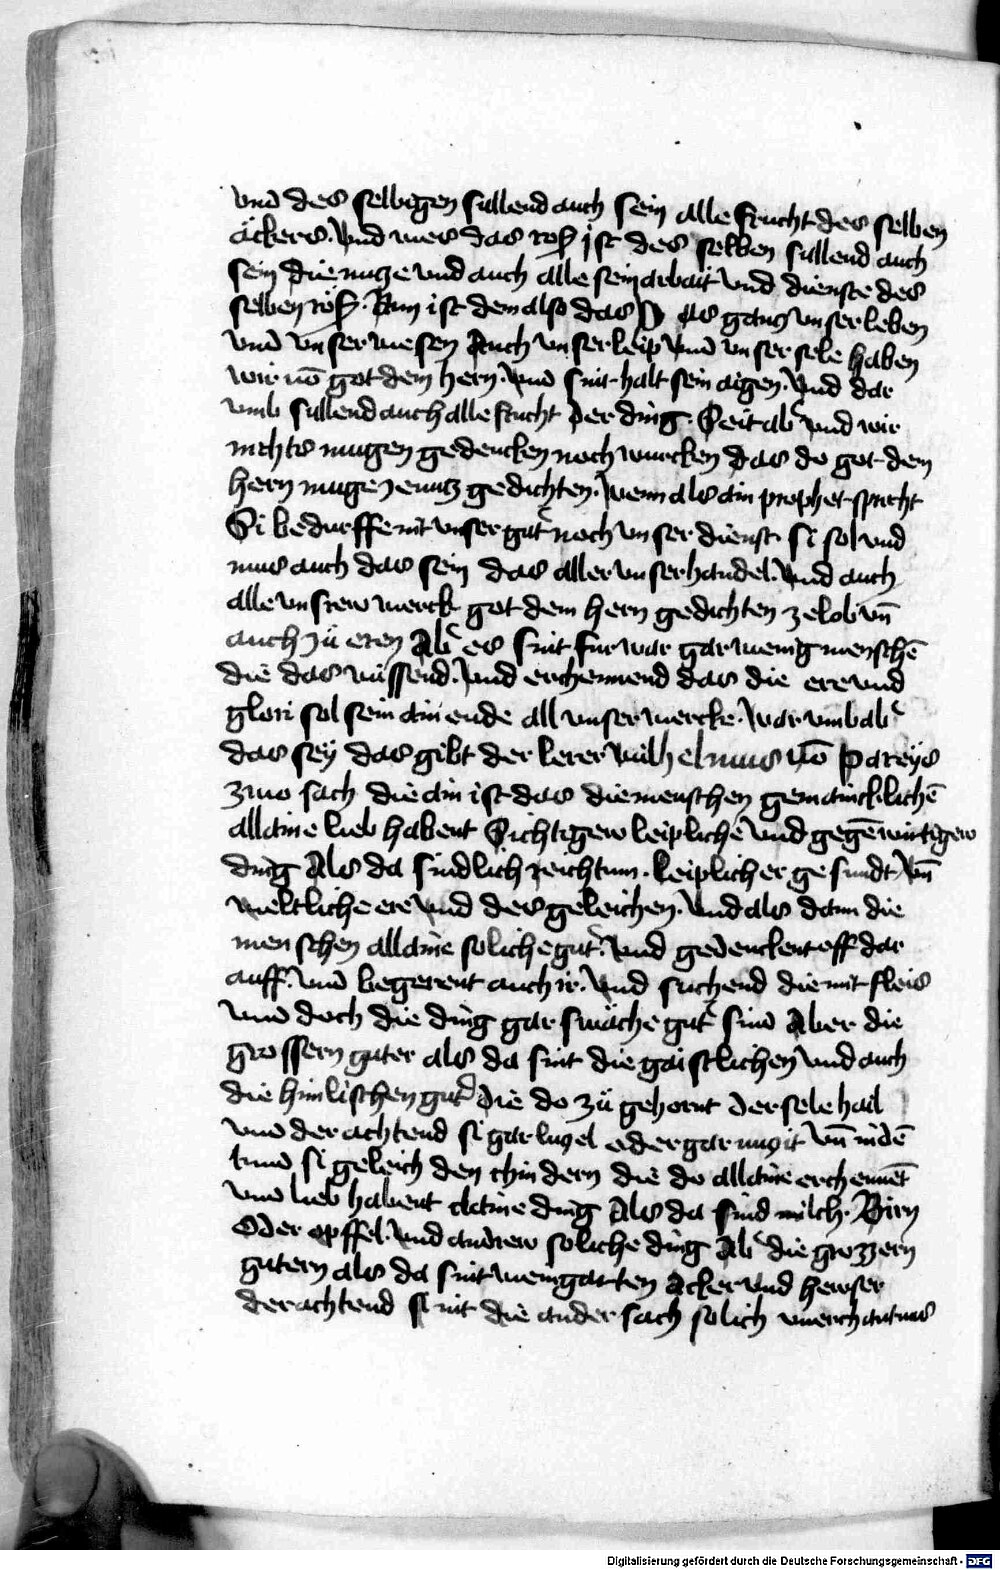 vnd des selbigen sullend auch sein alle frucht des selben
äckers. Vnd wes das roß ist des selben sullend auch
sein die nuze vnd auch alle sein arbait vnd dienste des
selben röß. Nun ist dem also das gancz vnser leben
vnd vnser wesen Auch vnser leip vnd vnser sele haben
wir vō got dem hern. vnd sint halt sein aigen. Vnd dar
vmb sullend auch alle frucht der ding. Seit ab vnd wir
nichts mugen gedencken noch wurcken das do got dem
hern muge gedichten. wenn als ain prophet spricht
Si bedurffe nit vnser gut noch vnser dienst si sol vnd
mus auch das sein das aller vnser handel. Vnd auch
alle vnsrew werck got dem hern gedichten ze lob vn̄
auch zü eren Ab es sint furwar gar wenig menschē
die das wissend. Vnd erchennend das die ere vnd
glori sol sein ain ende all vnser wercke. War vmb ab
das sey das gibt der lerer wilhelmus vō Pareys
zwo sach die ain ist das die menschen gemaincklichē
allaine lieb habent Sichtigew leiplichē vnd gegēwirtigew
ding Als da sind lich reichtum. Leiplicher gesundt vn̄
weltliche ere vnd des geleichen. Vnd als dann die
menschen allaine soliche gut. Vnd gedenckent off dar
auff. vnd begerent auch ir. Vnd suchend die mit fleis
vnd doch die ding gar swäche gut sind Aber die
grossern guter als da sint die gaistlichen vnd auch
die himlischen gut die do zü gehornt der sele hail
vnd der achtend si gar luzel oder gar nuzit vn̄ in dē
tund si geleich den chindern die do allaine erchennēt
vnd lieb habent claine ding Als da sind milch. Birn
Oder opffel. Vnd andrew soliche ding Ab die grozzern
gutern als da sint weingarten Acker vnd hewser
der achtend si nit die ander sach solich vnerchantnus
Digitalisierung gefördert durch die Deutsche Forschungsgemeinschaft - DFG